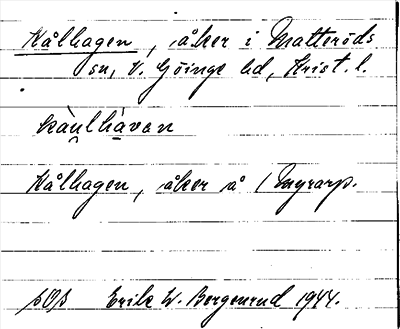 Kålhagen, åker i Matteröds
sn, V. Göinge hd, Krist. l.
kàu̯lhàvan
Kålhagen, åker å 1 Myrarp.
SOS Erik W. Bergenrud 1944.